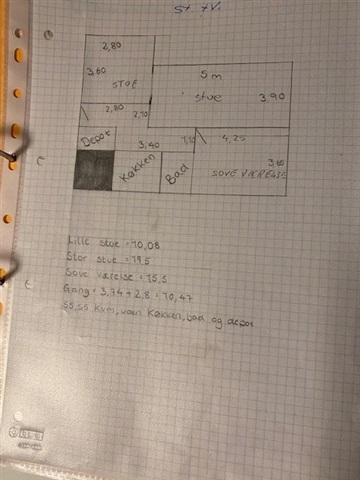 St. tv.
2,80
3,60
STUE
5 m
stue
3,90
2,80
2,70
Depot
3,40
1,10
4,25
Køkken
Bad
3,65
SOVE VÆRELSE
Lille stue = 10,08
Stor stue = 19,5
Sove værelse = 15,5
Gang = 3,74 + 2,8 = 10,47
55,55 Kvm, uden Køkken, bad og depot